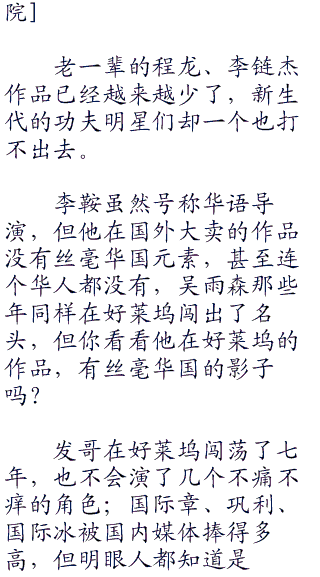 院]
老一辈的程龙、李链杰
作品已经越来越少了，新生
代的功夫明星们却一个也打
不出去。
李鞍虽然号称华语导
演，但他在国外大卖的作品
没有丝毫华国元素，甚至连
个华人都没有，吴雨森那些
年同样在好莱坞闯出了名
头，但你看看他在好莱坞的
作品，有丝毫华国的影子
吗？
发哥在好莱坞闯荡了七
年，也不会演了几个不痛不
痒的角色；国际章、巩利、
国际冰被国内媒体捧得多
高，但明眼人都知道是